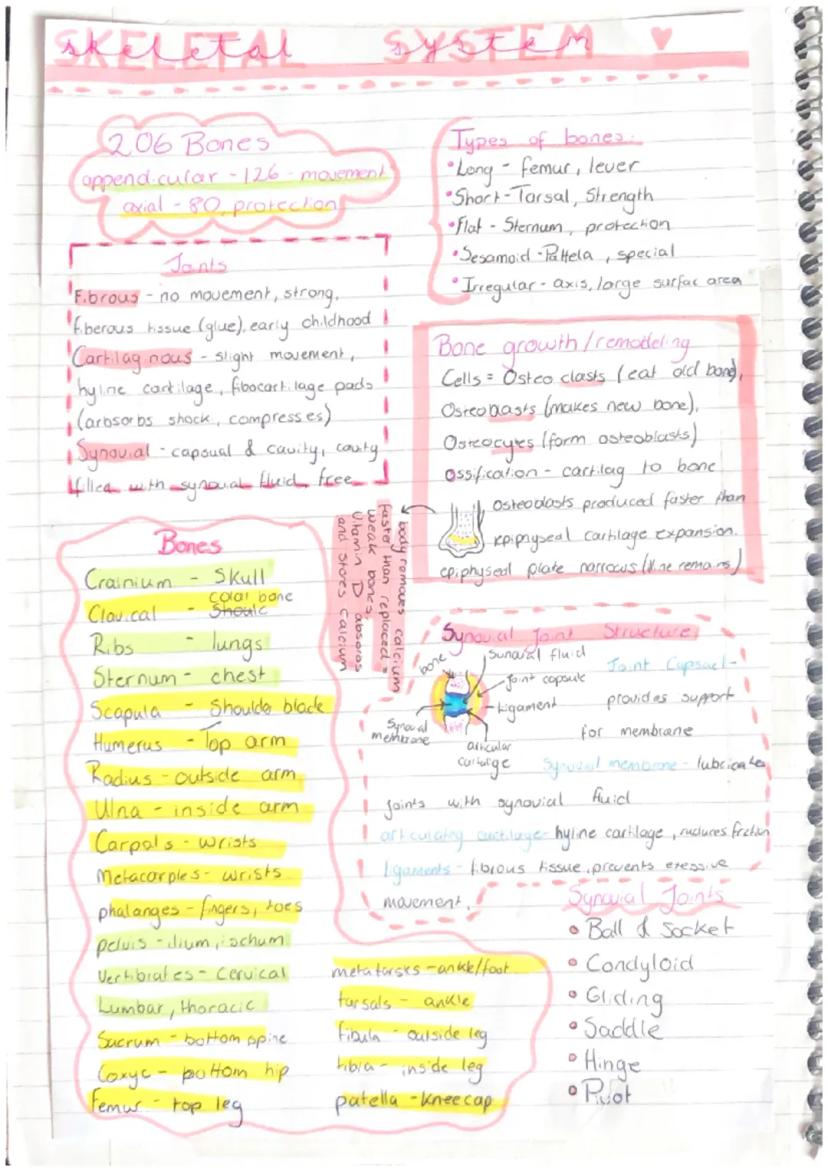 SKELETAL SYSTEM
206 Bones
appendicular - 126 - movement
axial - 80, protection
Types of bones:
Long - femur, lever
Short - Tarsal, Strength
Flat - Sternum, protection
Sesamoid - Pattela, special
Irregular - axis, large surfac area
Joints
Fibrous - no movement, strong,
fiberous tissue (glue), early childhood
Cartilag nous - slight movement,
hyline cartilage, fibocartilage pads
(arbsorbs shock, compresses)
Synovial - capsual & cavity, cavity
filled with synovial fluid, free
Bone growth/remodeling
Cells = Osteo clasts (eat old bone),
Osteoblasts (makes new bone),
Osteocytes (form osteoblasts)
Ossification - cartilag to bone
osteoblasts produced faster than
epiphyseal cartilage expansion.
epiphyseal plate narrows (line remains)
body removes calcium
faster than replaced =
weak bones.
Vitamin D absorbs
and stores calcium
Bones
Crainium - Skull
Clavical - Shoulc
colar bone
Ribs - lungs
Sternum - chest
Scapula - Shoulder blade
Humerus - Top arm
Radius - outside arm
Ulna - inside arm
Carpals - wrists
Metacarples - wrists
phalanges - fingers, toes
pelvis - ilium, ischum
Vertibrates - Cervical
Lumbar, thoracic
Sacrum - bottom spine
Coxyc - bottom hip
Femur - top leg
metatarsks - ankle/foot
tarsals - ankle
fibula - outside leg
tibia - inside leg
patella - kneecap
Synovial Joint Structure
bone
Sunovial fluid
joint capsule
Ligament
Synoval
membrane
articular
cartilage
Joint Capsuel -
provides support
for membrane
Synovial membrane - lubricates
joints with synovial fluid
articulating cartilage - hyline cartilage, reduces friction
ligaments - fibrous tissue, prevents exessive
movement.
Synovial Joints
Ball & Socket
Condyloid
Gliding
Saddle
Hinge
Pivot